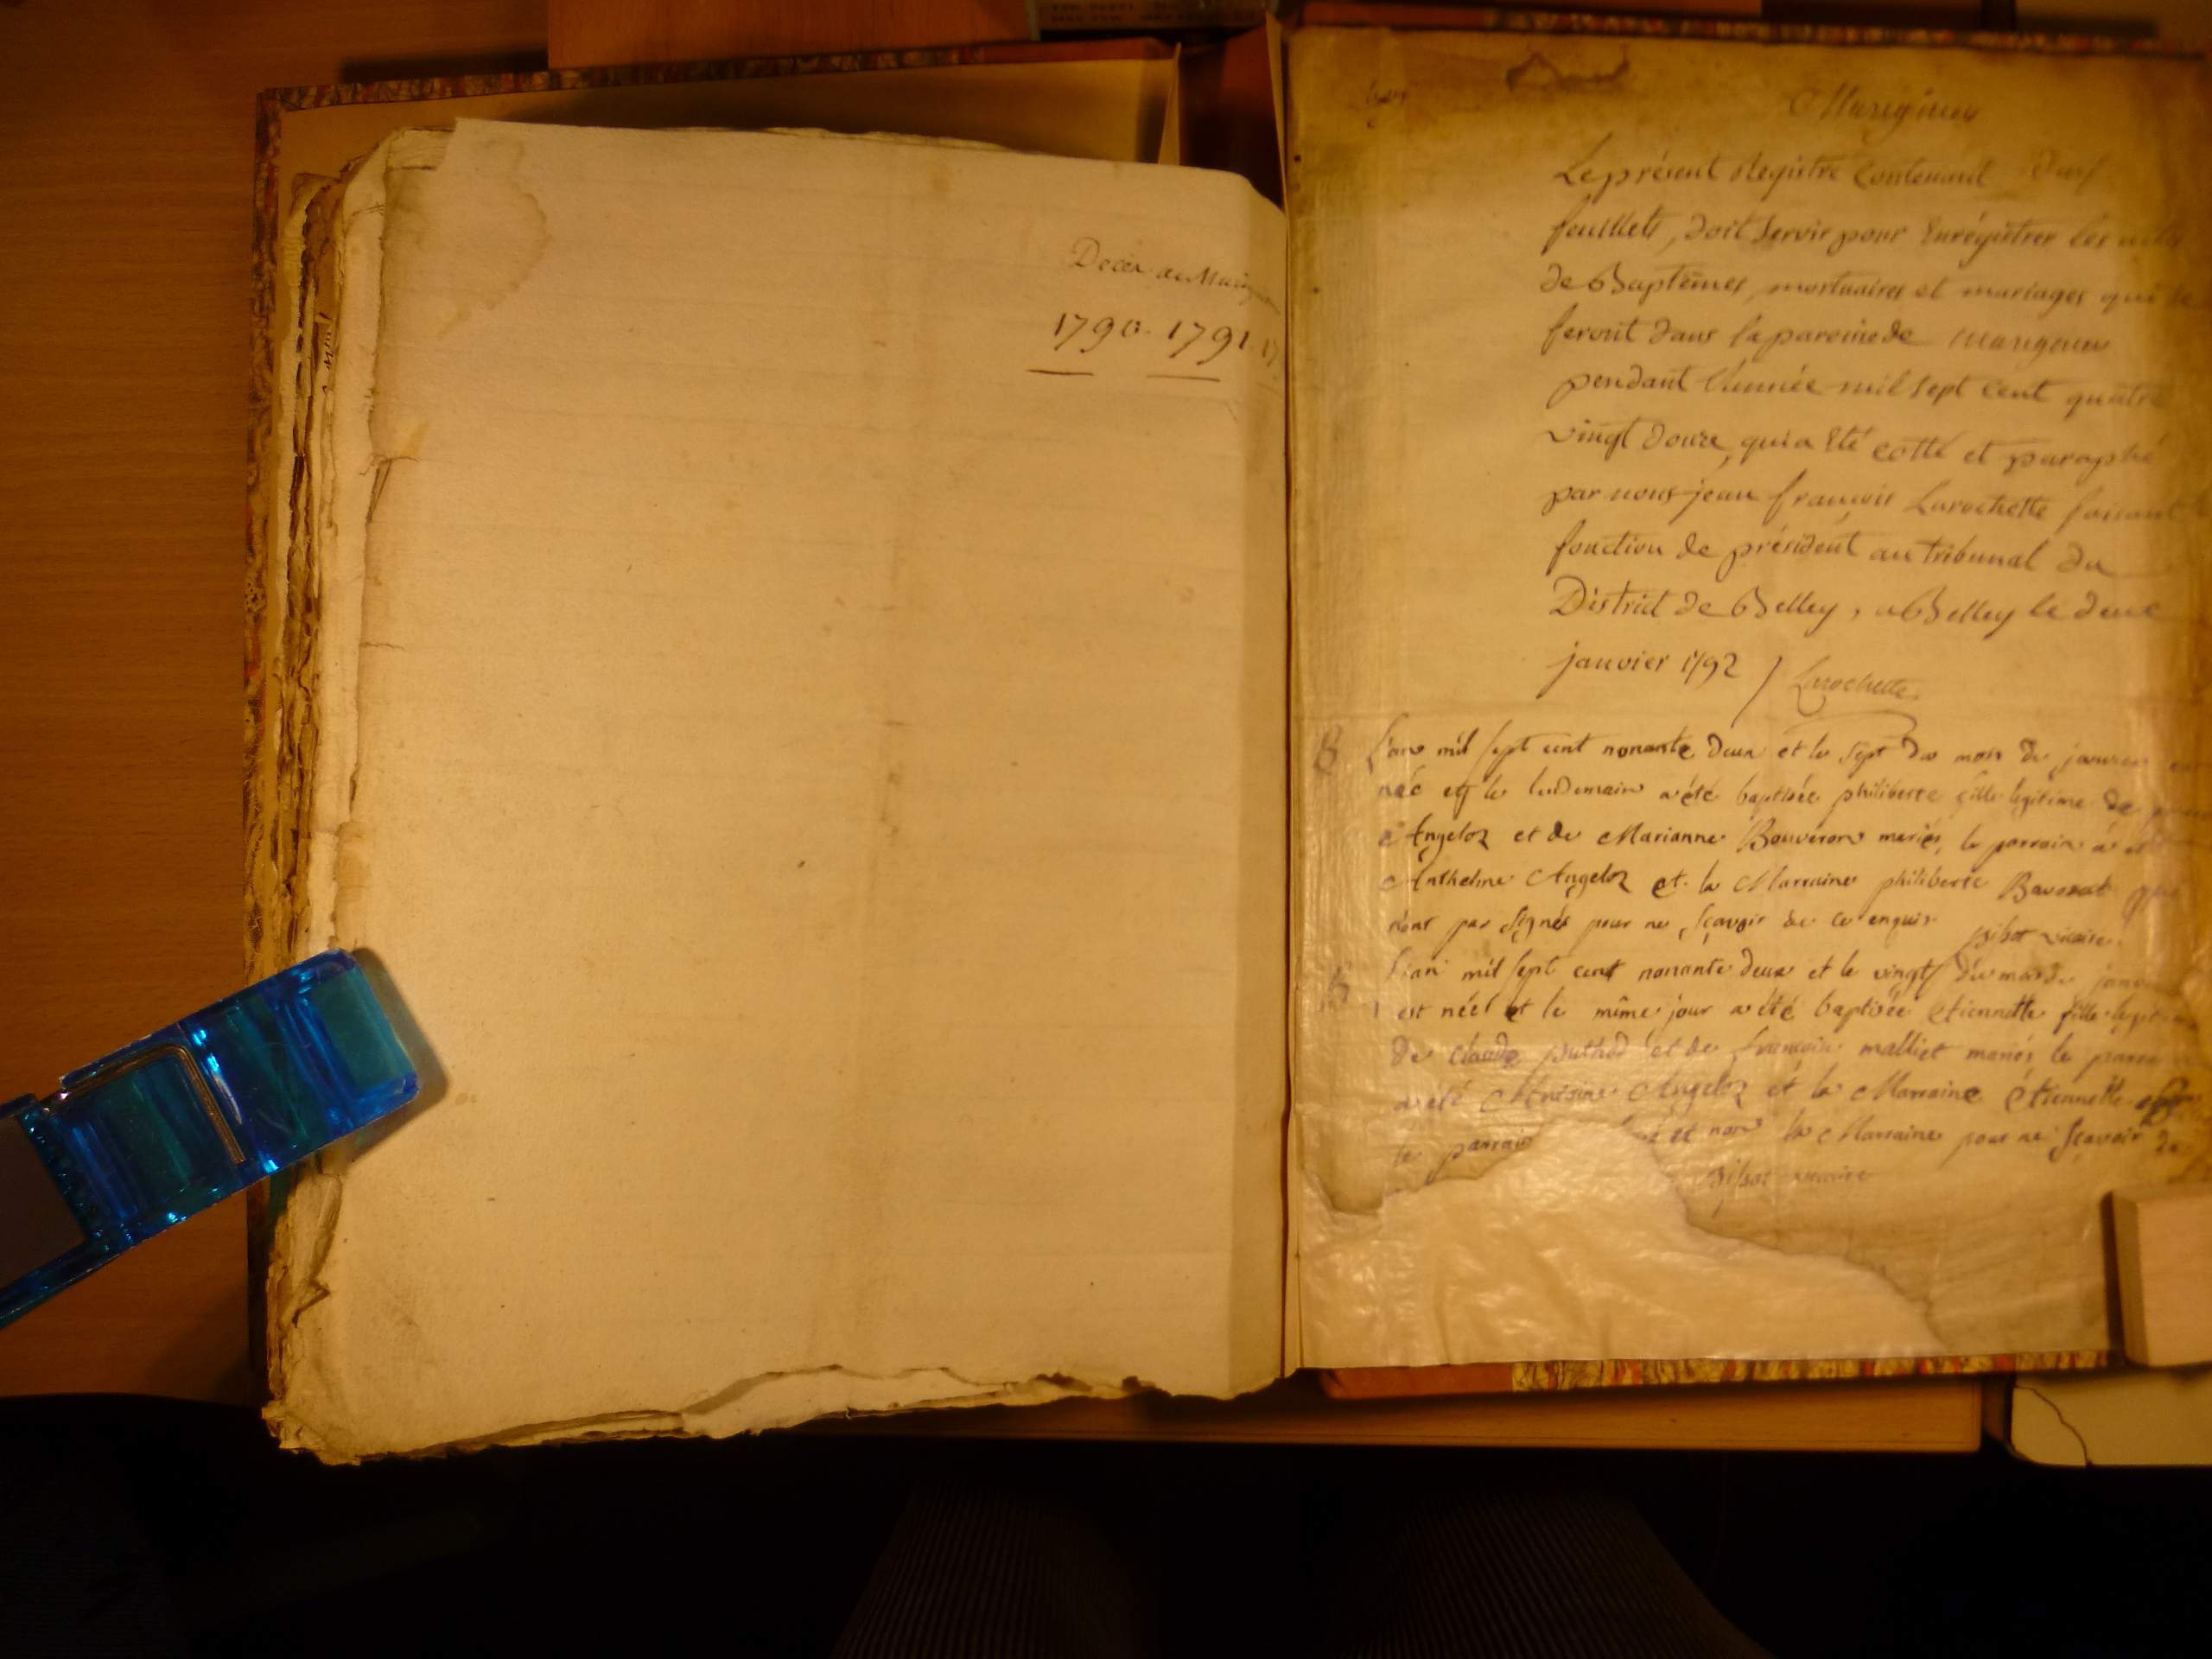 Decès au Marign
1790. 1791 17
Marignieu
Le présent Registre Contenant
feuillets, doit Servir pour Enrégistrer les actes
de Baptêmes, mortuaires et mariages qui se
feront dans la paroisse de marignieu
pendant l'année mil sept cent quatre
vingt douze, qui a Eté cotté et paraphé
par nous jean françois Larochette faisant
fonction de président au tribunal du
District de Belley, a Belley le deux
janvier 1792 / Larochette
B L'an mil sept cent nonante deux et le sept du mois de janvier est
née et le lendemain a été baptisée philiberte fille legitime de
Angeloz et de Marianne Bouveron mariés, le parrain a été
Anthelme Angeloz et la Marraine philiberte Bavosat qui
n'ont pas signés pour ne sçavoir de ce enquis. pibot vicaire.
B L'an mil sept cent nonante deux et le vingt du mois de janv
est néel et le même jour a été baptisée Etiennette fille legit
de claude puthod et de françoise malliet mariés le parra
a été Antoine Angeloz et la Marraine Etiennette
le parrain et non la Marraine pour ne sçavoir de
pibot vicaire